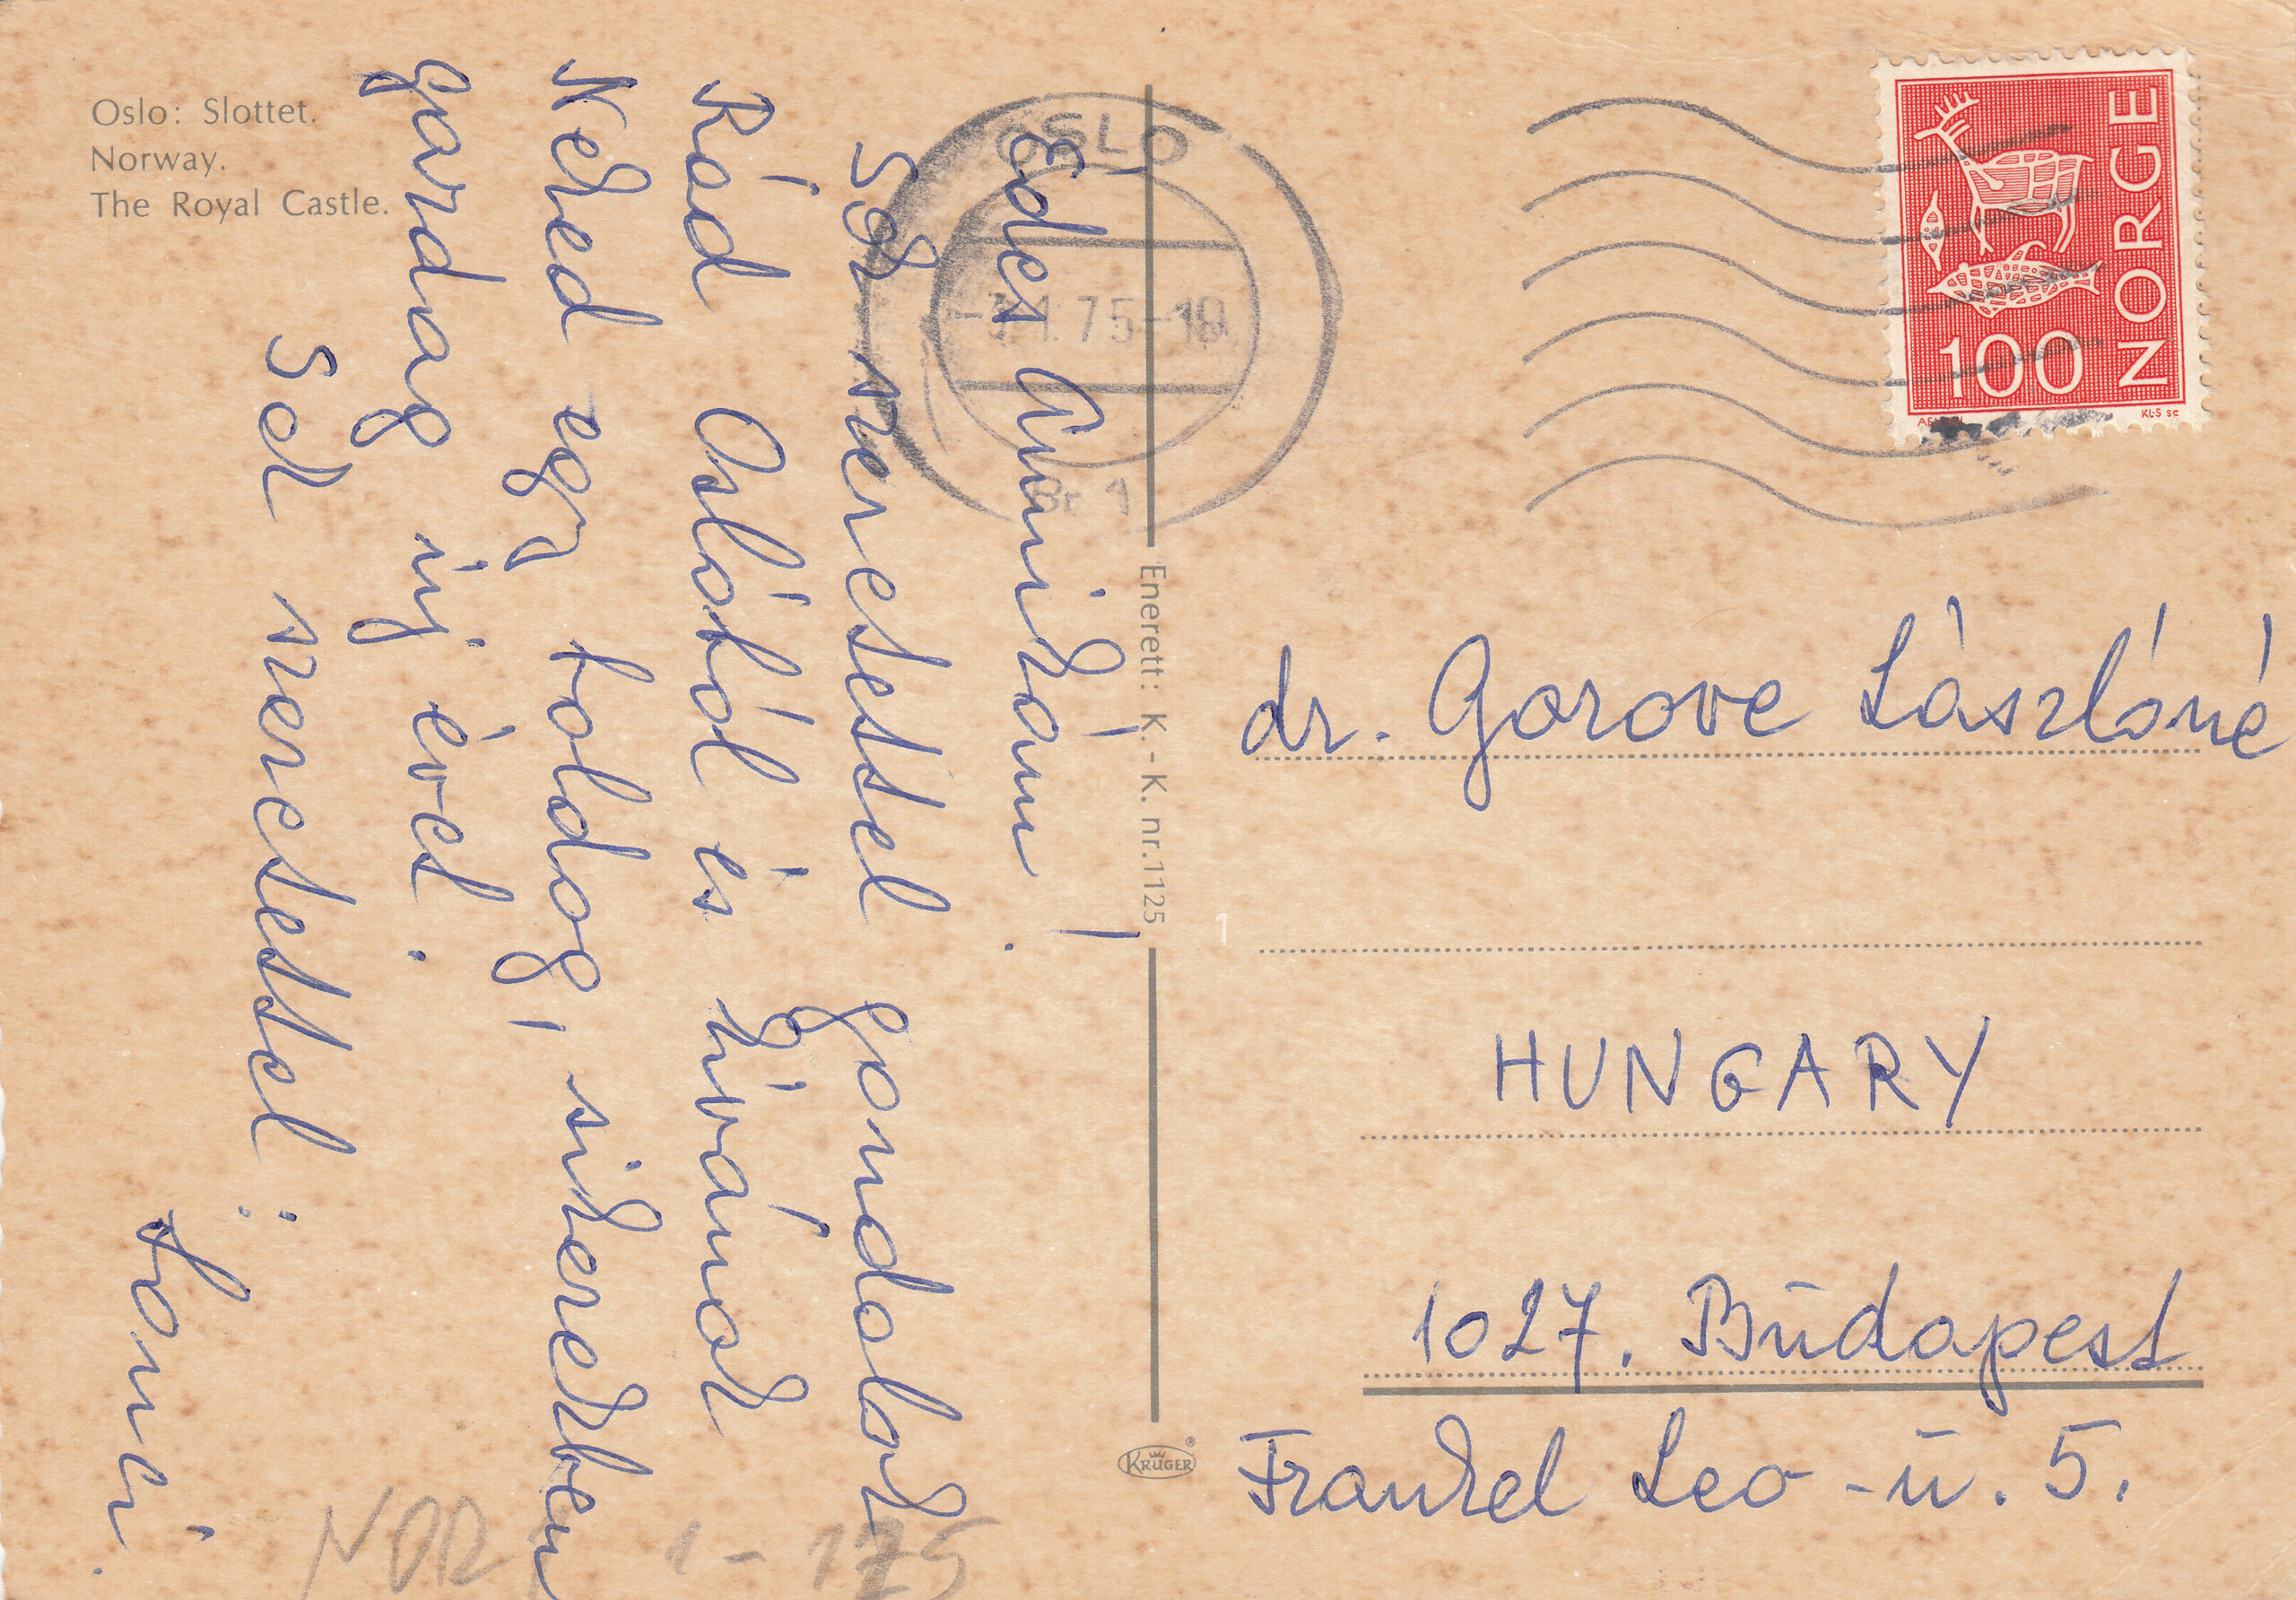 Oslo: Slottet.
Norway.
The Royal Castle.
Édes Anikám!
Sok szeretettel gondolok
Rád Oslóból és kívánok
Neked egy boldog, sikerekben
gazdag új évet.
Sok szeretettel:
OSLO
75-18
Br 1
Enerett: K.-K. nr.1125
KRÜGER
NORGE
100
KL·S sc
dr. Gorove Lászlóné
HUNGARY
1027. Budapest
Frankel Leo-u. 5.
NOR 1-175